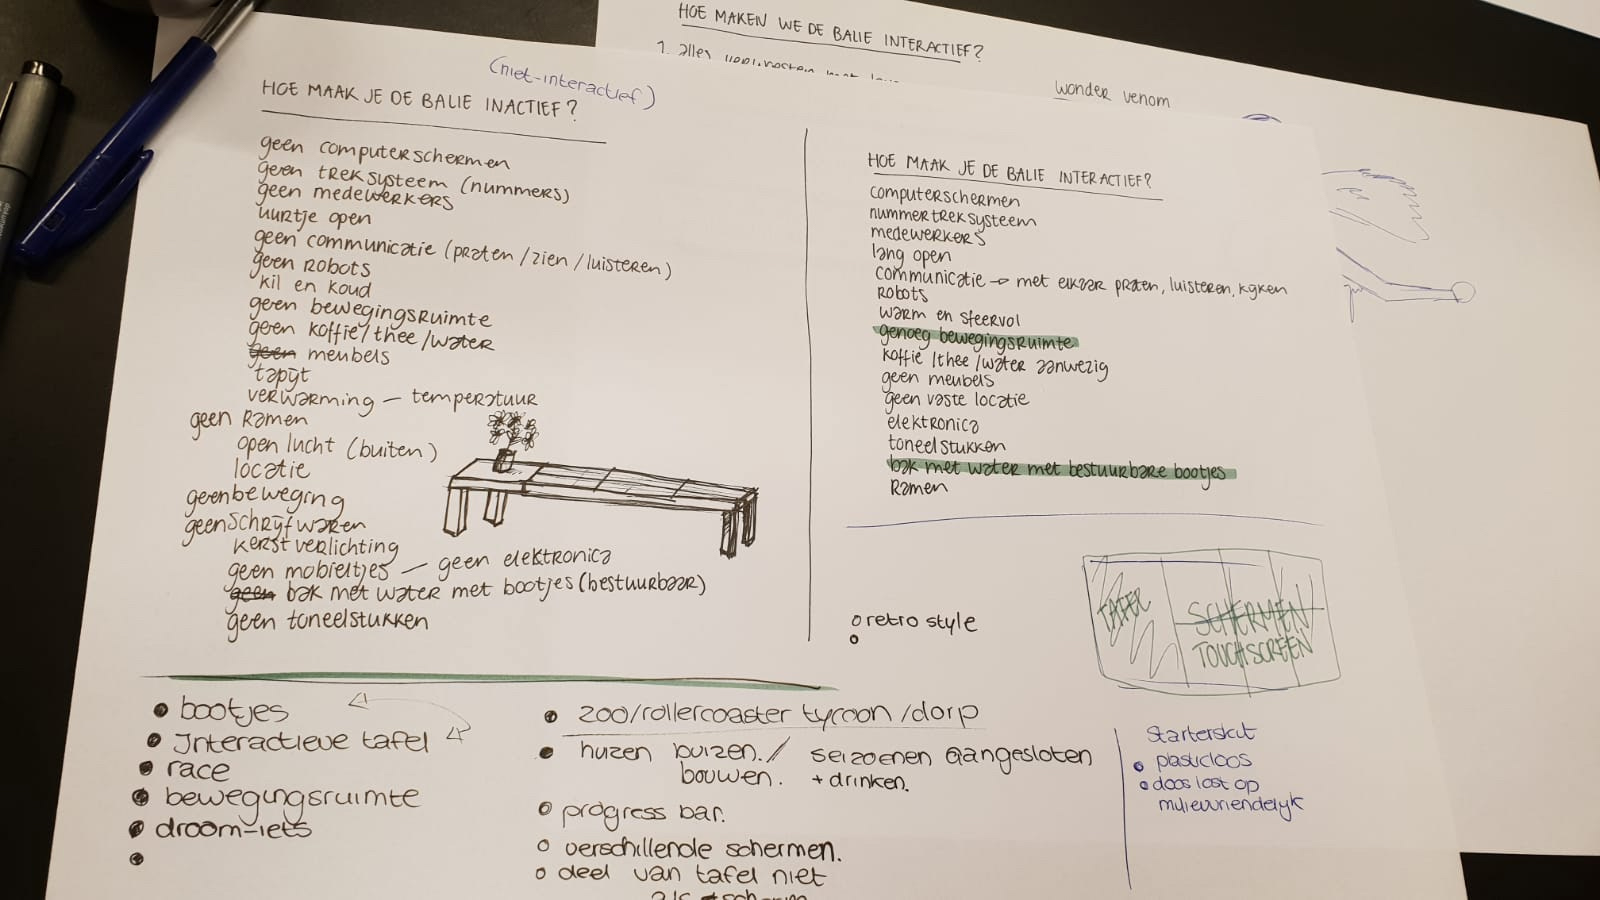 HOE MAKEN WE DE BALIE INTERACTIEF?
1. alles
wonder venom
(niet-interactief)
HOE MAAK JE DE BALIE INACTIEF?
geen computerschermen
geen treksysteem (nummers)
geen medewerkers
uurtje open
geen communicatie (praten/zien/luisteren)
geen robots
kil en koud
geen bewegingsruimte
geen koffie/thee/water
geen meubels
tapijt
verwarming — temperatuur
geen ramen
open lucht (buiten)
locatie
geen beweging
geen schrijfwaren
kerstverlichting
geen mobieltjes — geen elektronica
geen bak met water met bootjes (bestuurbaar)
geen toneelstukken
HOE MAAK JE DE BALIE INTERACTIEF?
computerschermen
nummertreksysteem
medewerkers
lang open
communicatie → met elkaar praten, luisteren, kijken
robots
warm en sfeervol
genoeg bewegingsruimte
koffie/thee/water aanwezig
geen meubels
geen vaste locatie
elektronica
toneelstukken
bak met water met bestuurbare bootjes
ramen
retro style
TAFEL
SCHERMEN
TOUCHSCREEN
bootjes
Interactieve tafel
race
bewegingsruimte
droom-iets
zoo/rollercoaster tycoon/dorp
huizen buizen./ seizoenen aangesloten
bouwen. + drinken.
progress bar.
verschillende schermen.
deel van tafel niet
als scherm
Starterskit
plasticloos
doos lost op
milieuvriendelijk